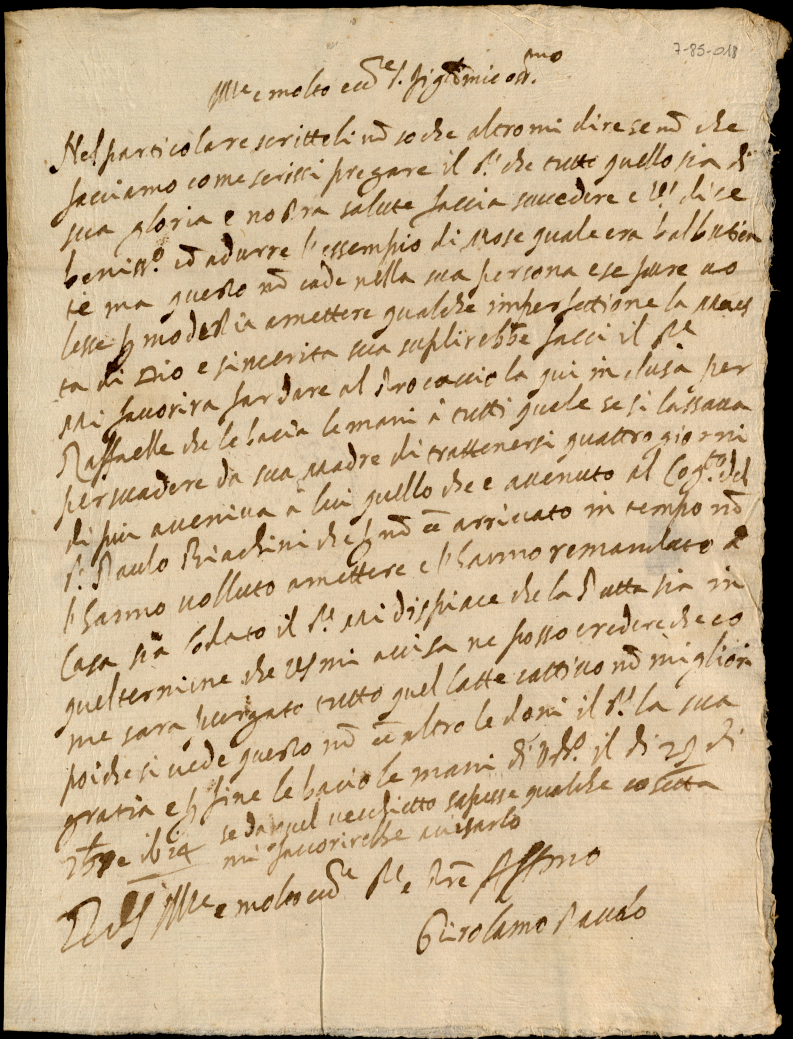 7-85-018
Ill.re e molto ecc.te S.r sig.r mio oss.mo
Nel particolare scrittoli nō so che altro mi dire se nō che
facciamo come scrissi pregare il S.r che tutto quello sia di
sua gloria e nostra salute faccia succedere e V.S. dice
beniss.o ed adurre l'essempio di Mose quale era balbutien
te ma questo nō cade nella sua persona e se pure vo
lesse p modestia amettere qualche imperfettione la Maes
ta di Dio e sincerita sua suplirebbe facci il S.re
Mi favorira far dare al Procaccio la qui inclusa per
Raffaelle che le bacia le mani à tutti quale se si lassava
persuadere da sua Madre di trattenersi quattro giorni
di piu aveniva à lui quello che e avenuto al Cog.to del
S.r Paulo Biachini che p nō ē arrivato in tempo nō
l'hanno volluto amettere e l'hanno remandato à
Casa sia lodato il S.re Mi dispiace che la Putta sia in
quel termine che VS mi avisa ne posso credere che co
me sara purgato tutto quel latte cattivo nō migliori
poiche si vede questo nō ē altro le doni il S.r la sua
gratia e p fine le bacio le mani di il di 29 di
se da quel vecchietto sapesse qualche cosetta
mi favorirebbe avisarlo
Di VS Ill.re e molto ecc.te S.re Aff.mo
Girolamo Paulo